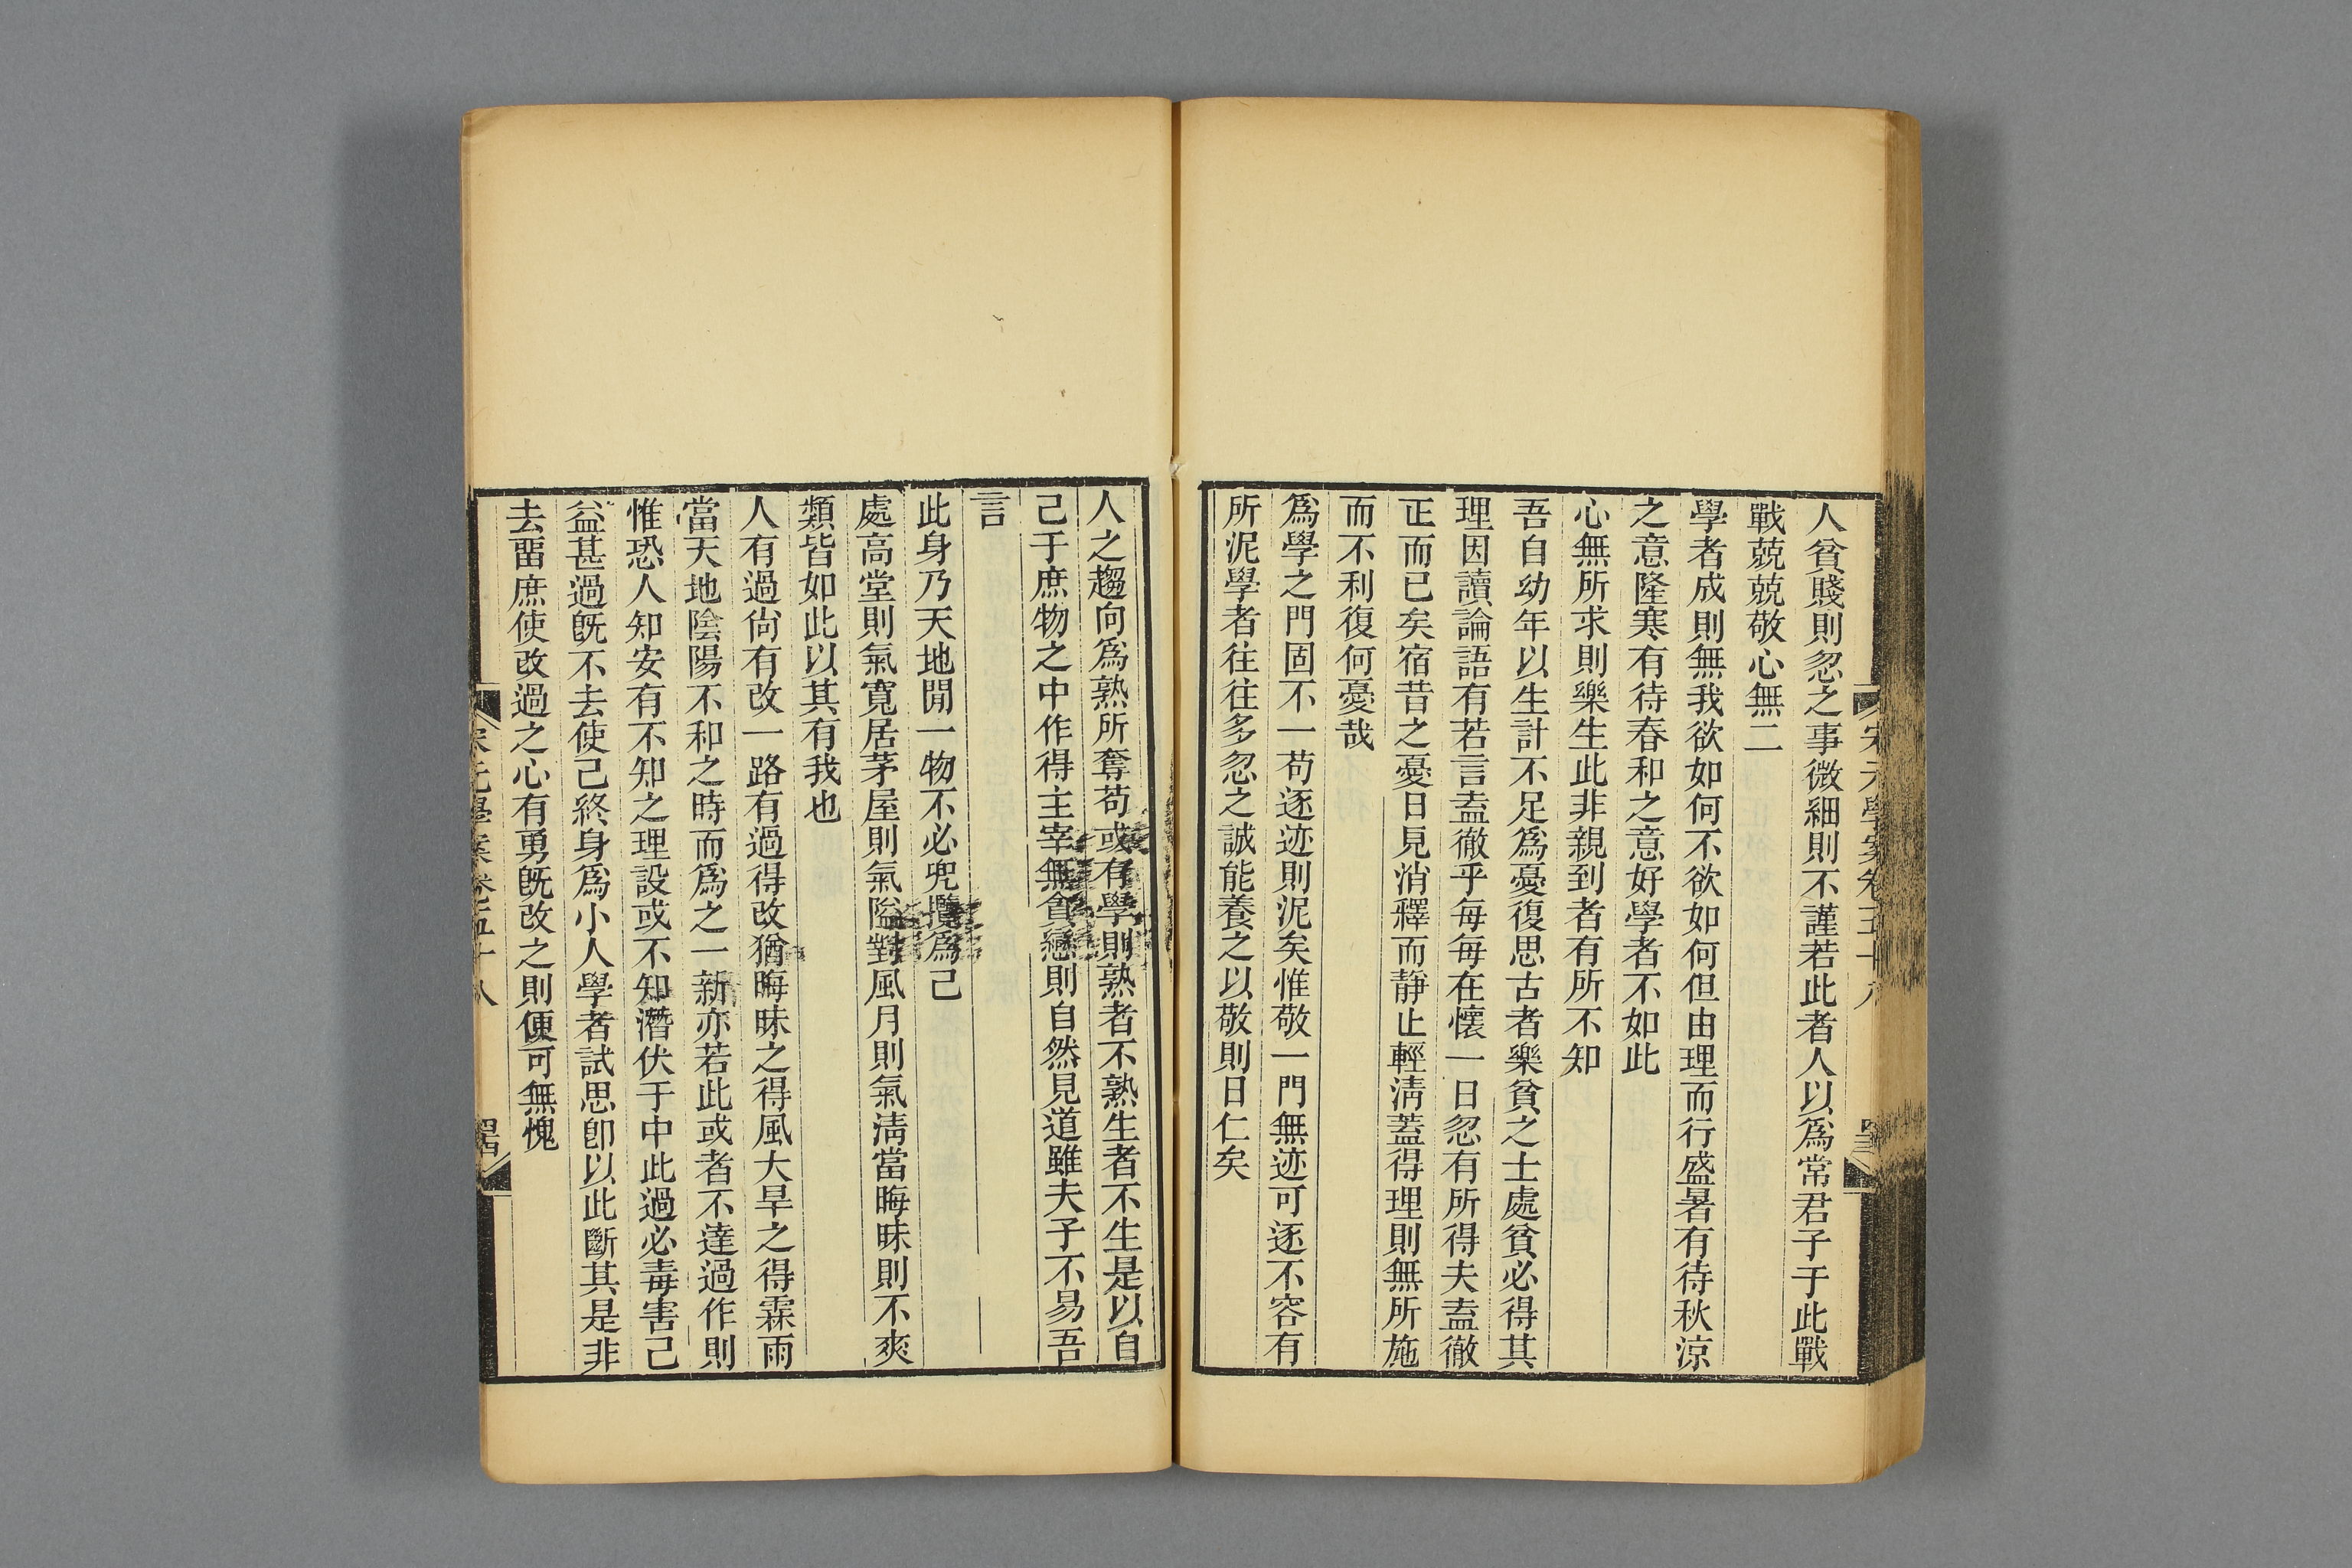 人貧賤則忽之事微細則不謹若此者人以爲常君子于此戰
戰兢兢敬心無二
學者成則無我欲如何不欲如何但由理而行盛暑有待秋涼
之意隆寒有待春和之意好學者不如此
心無所求則樂生此非親到者有所不知
吾自幼年以生計不足爲憂復思古者樂貧之士處貧必得其
理因讀論語有若言盍徹乎每每在懷一日忽有所得夫盍徹
正而已矣宿昔之憂日見消釋而靜止輕淸蓋得理則無所施
而不利復何憂哉
爲學之門固不一苟逐迹則泥矣惟敬一門無迹可逐不容有
所泥學者往往多忽之誠能養之以敬則日仁矣
宋元學案卷五十八
人之趨向爲熟所奪苟或有學則熟者不熟生者不生是以自
己于庶物之中作得主宰無貪戀則自然見道雖夫子不易吾
言
此身乃天地閒一物不必兜攬爲己
處高堂則氣寬居茅屋則氣隘對風月則氣淸當晦昧則不爽
類皆如此以其有我也
人有過尙有改一路有過得改猶晦昧之得風大旱之得霖雨
當天地陰陽不和之時而爲之一新亦若此或者不達過作則
惟恐人知安有不知之理設或不知潛伏于中此過必毒害己
益甚過旣不去使己終身爲小人學者試思卽以此斷其是非
去畱庶使改過之心有勇旣改之則便可無愧
宋元學案卷五十八